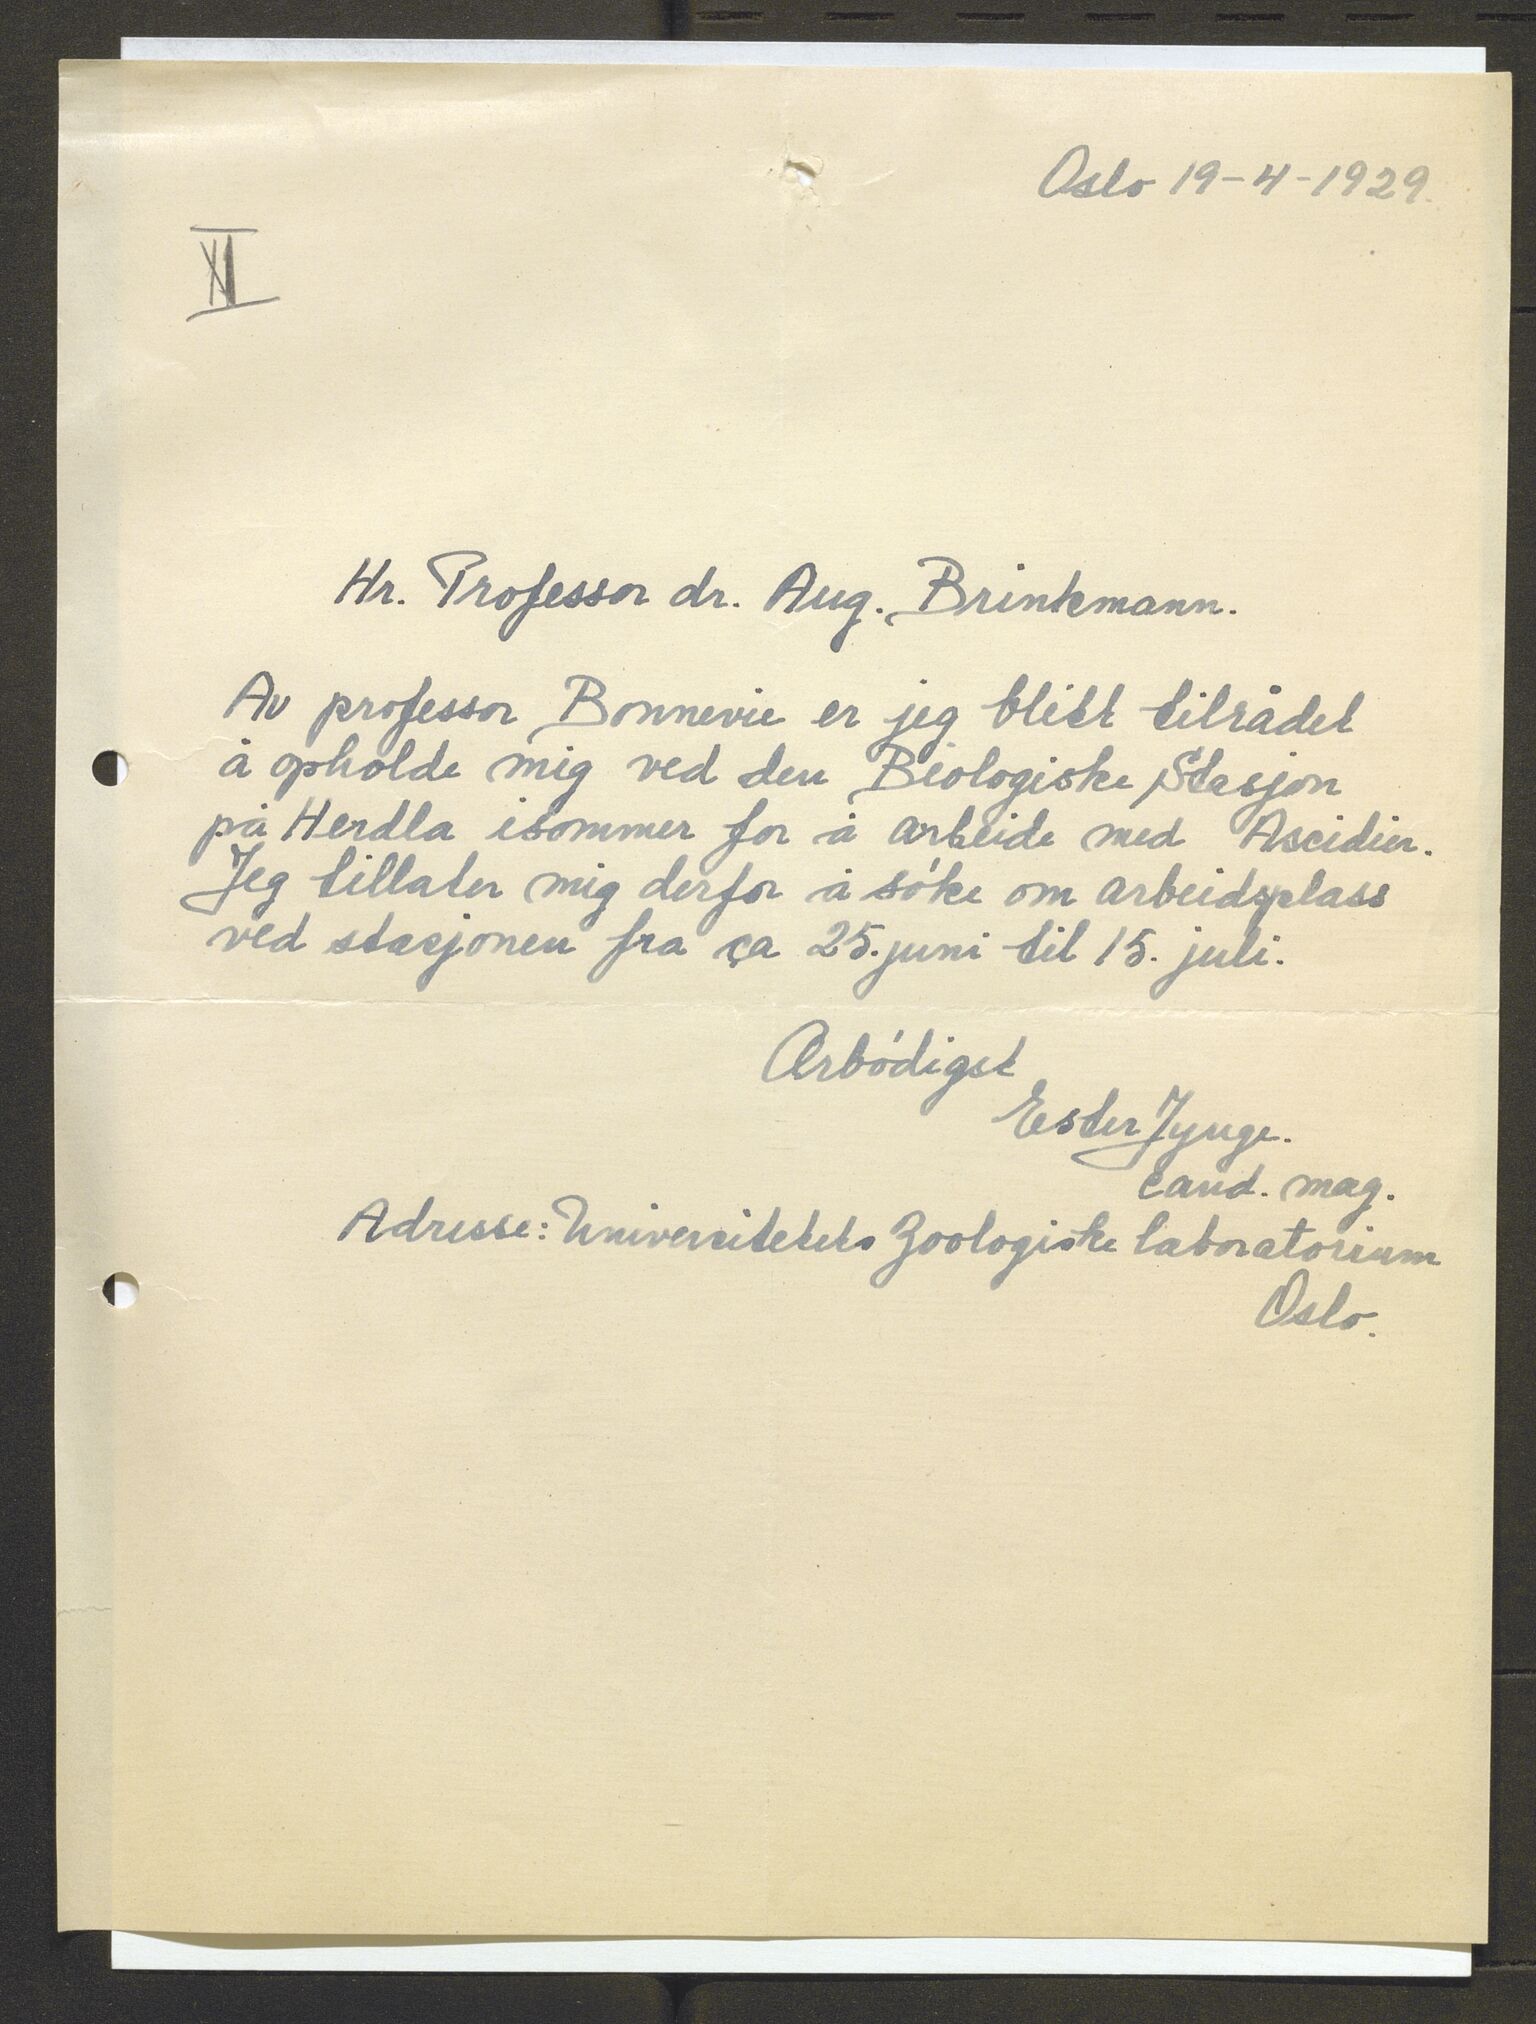 Oslo 19-4-1929.
XI
Hr. Professor dr. Aug. Brinkmann.
Av professor Bonnevie er jeg blitt tilrådet
å opholde mig ved den Biologiske Stasjon
på Herdla isommer for å arbeide med Ascidier.
Jeg tillater mig derfor å söke om arbeidsplass
ved stasjonen fra ca 25. juni til 15. juli.
Ærbödigst
Ester Jynge.
cand. mag.
Adresse: Universitetets Zoologiske laboratorium
Oslo.